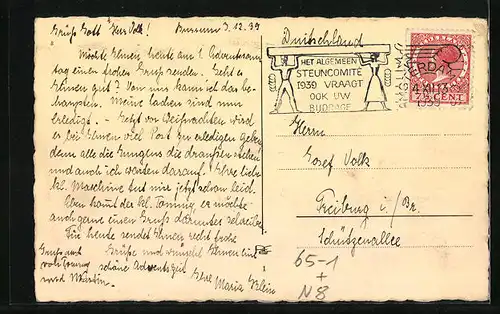 Grüß Gott Herr Volk! Bussum 3.12.39
Möchte Ihnen heute am 1. Adventssonn
tag einen frohen Gruß senden. Geht es
Ihnen gut? Von uns kann ich das be-
haupten. Meine laden sind nun
erledigt. - Jetzt vor Weihnachten wird
es bei Ihnen viel Post zu erledigen geben
denn alle die Jungens die draußen stehen
und ich warten darauf. Ihre liebe
kl. Maschine tut mir jetzt schon leid.
Eben kommt der Hl. er möchte
auch gerne einen Gruß darunter schreiben
Für heute sendet Ihnen recht frohe
Grüße und wünscht Ihnen eine
schöne Adventszeit Ihre Maria Klein
Gruß auch
von
und Martin.
Duitschland
HET ALGEMEEN
STEUNCOMITÉ
1939 VRAAGT
OOK UW
BIJDRAGE
AMSTERDAM
4 XII
1939
7½ CENT
Herrn
Josef Volk
Freiburg i./Br.
Schützenallee
65-1
+
N8